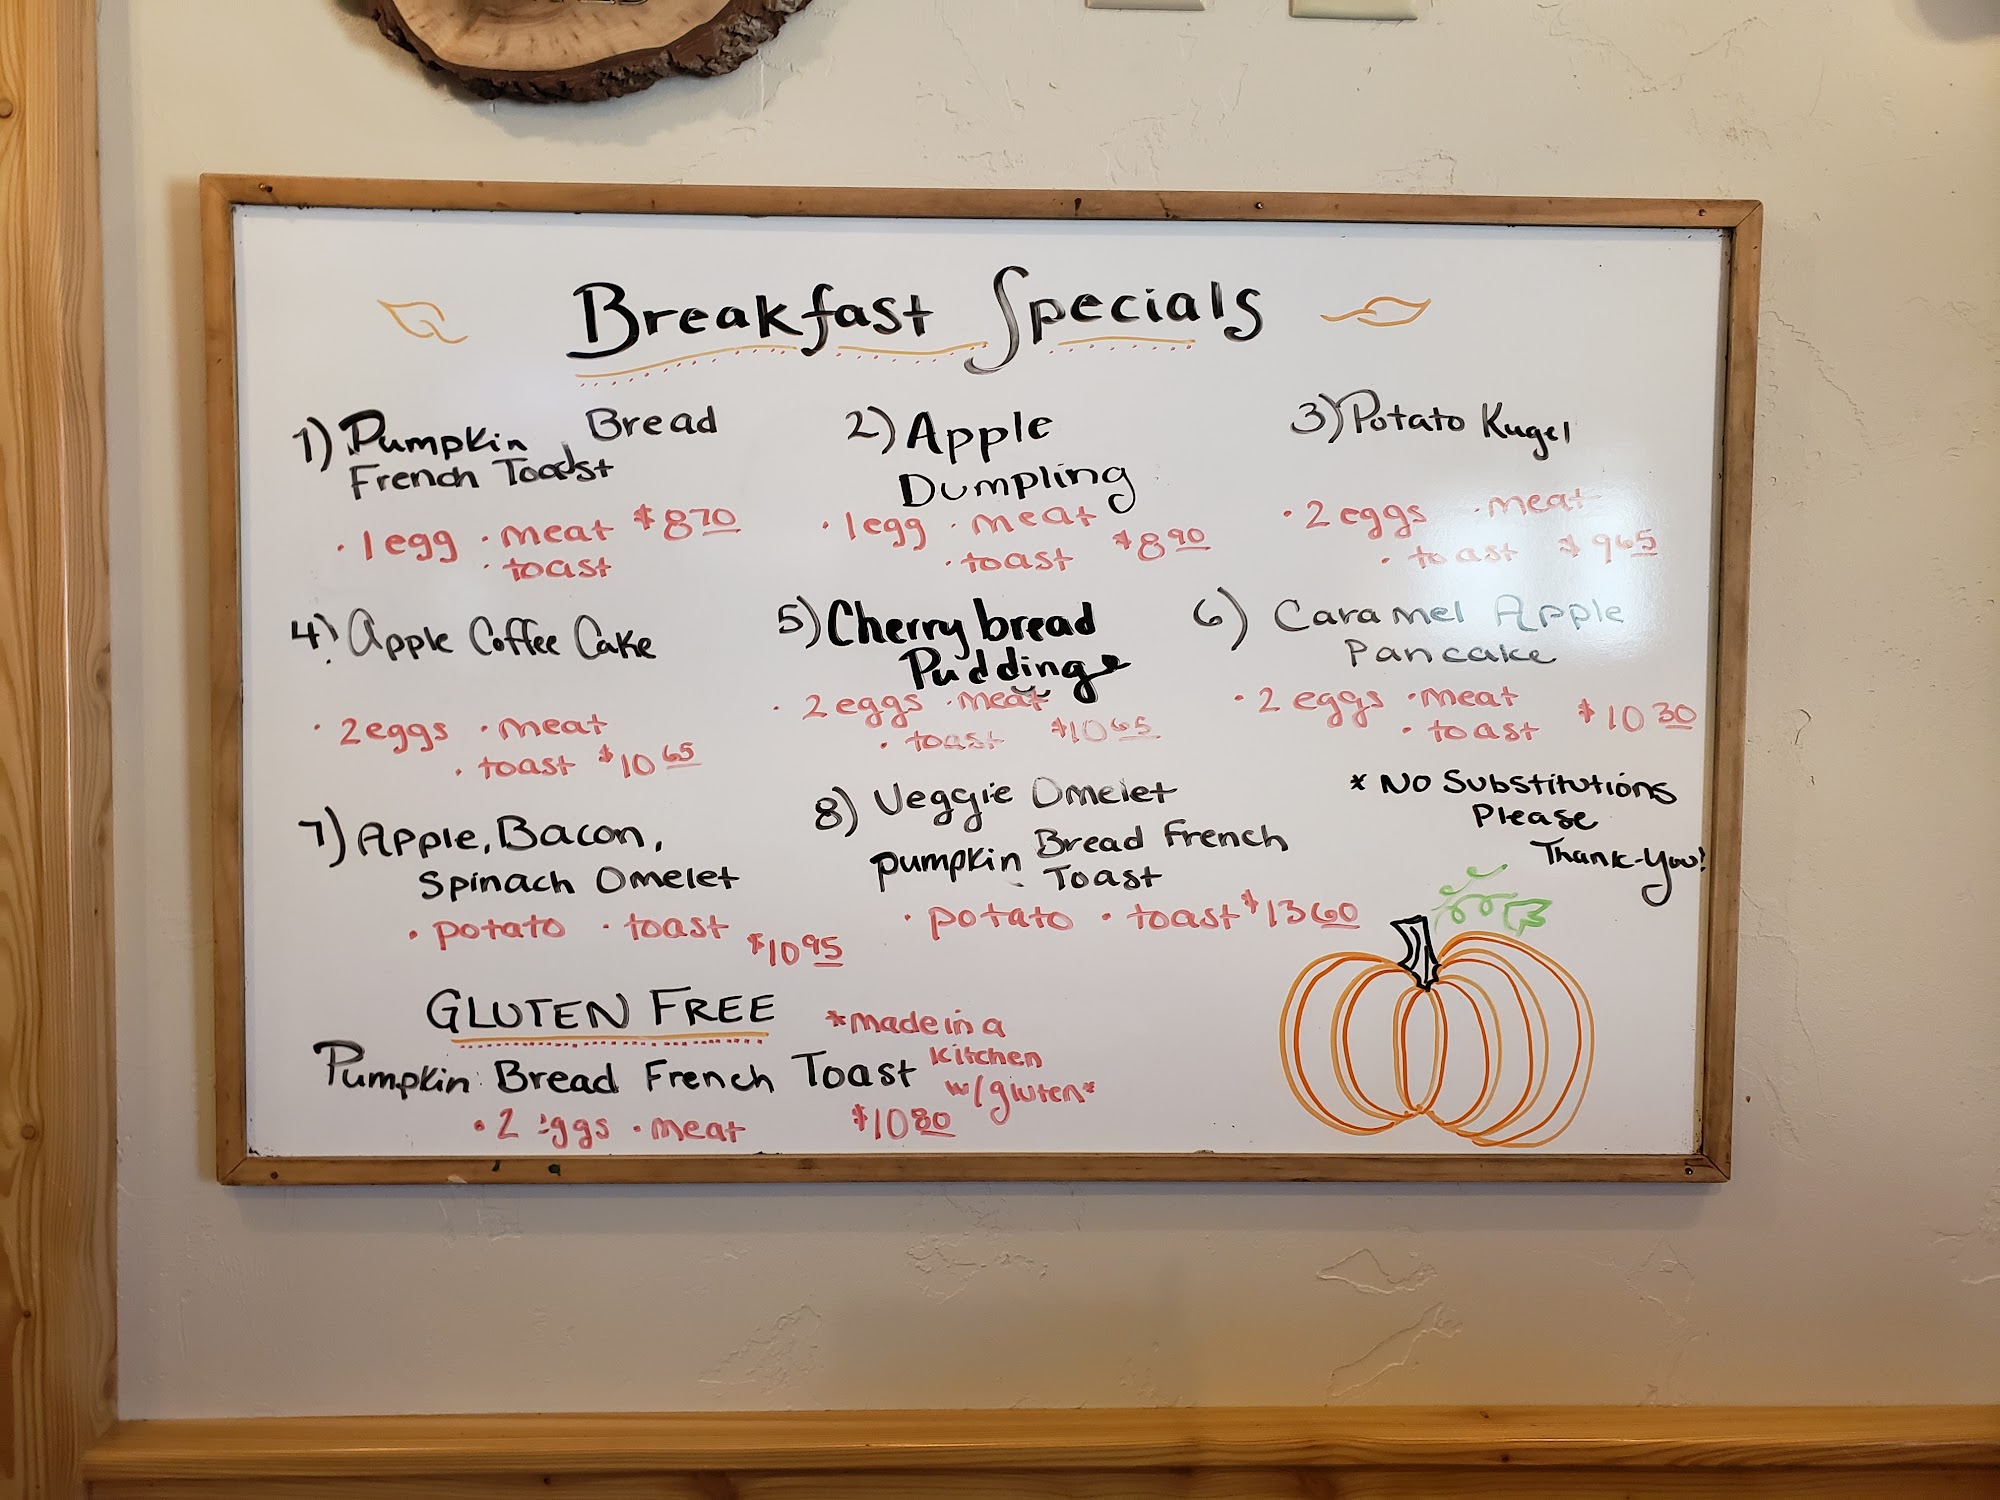 Breakfast Specials
1) Pumpkin Bread
French Toast
• 1 egg • meat $8 70
• toast
2) Apple
Dumpling
• 1 egg • meat
• toast $8 90
3) Potato Kugel
• 2 eggs • meat
• toast $9 65
4) Apple Coffee Cake
• 2 eggs • meat
• toast $10 65
5) Cherry bread
Pudding
• 2 eggs • meat
• toast $10 65
6) Caramel Apple
Pancake
• 2 eggs • meat
• toast $10 30
7) Apple, Bacon,
Spinach Omelet
• potato • toast $10 95
8) Veggie Omelet
pumpkin Bread French
Toast
• potato • toast $13 60
* No Substitutions
Please
Thank-You!
GLUTEN FREE
Pumpkin Bread French Toast
• 2 eggs • meat $10 80
*made in a
kitchen
w/gluten*